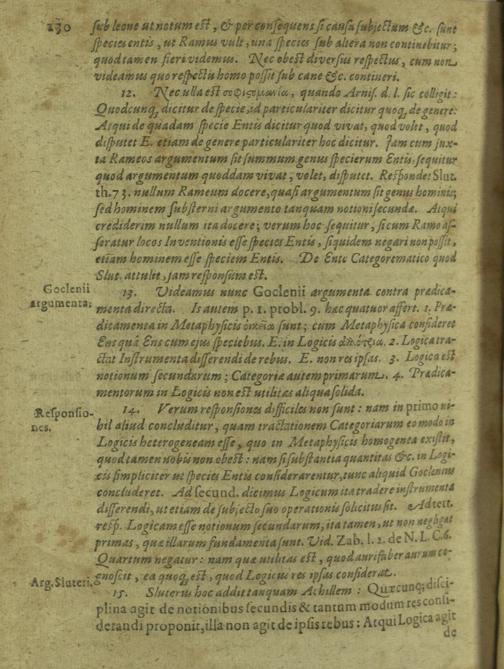 230 sub leone ut notum est, & per consequens si causa subjectum &c. sunt
species entis, ut Ramus vult, una species sub altera non continebitur;
quod tamen fieri videmus. Nec obest diversus respectus, cum non
videamus quo respectu homo possit sub cane &c. contineri.
12. Nec ulla est σοφισομανία, quando Arnis. d. l. sic colligit:
Quodcunq; dicitur de specie, id particulariter dicitur quoq; de genere:
Atqui de quadam specie Entis dicitur quod vivat, quod volet, quod
disputet E. etiam de genere particulariter hoc dicitur. Jam cum jux-
ta Rameos argumentum sit summum genus specierum Entis, sequitur
quod argumentum quoddam vivat, volet, disputet. Respondet Slut.
th. 73. nullum Rameum docere, quasi argumentum sit genus hominis,
sed hominem substerni argumento tanquam notioni secundæ. Atqui
crediderim nullum ita docere; verum hoc sequitur, si cum Ramo as-
seratur locos Inventionis esse species Entis, siquidem negari non possit,
etiam hominem esse speciem Entis. De Ente Categorematico quod
Slut. attulit, jam responsum est.
Goclenii
argumenta.
13. Videamus nunc Goclenii argumenta contra prædica-
menta directa. Is autem p. 1. probl. 9. hæc quatuor affert. 1. Præ-
dicamenta in Metaphysicis οἰκεῖα sunt; cum Metaphysica consideret
Ens quâ Ens cum ejus speciebus. E. in Logicis 2. Logica tra-
ctat Instrumenta differendi de rebus. E. non res ipsas. 3. Logica est
notionum secundarum; Categoriæ autem primarum. 4. Prædica-
mentorum in Logicis non est utilitas aliqua solida.
Responsio-
nes.
14. Verum responsiones difficiles non sunt: nam in primo ni-
hil aliud concluditur, quam tractationem Categoriarum eo modo in
Logicis heterogeneam esse, quo in Metaphysicis homogenea existit,
quod tamen nobis non obest: nam si substantia quantitas &c. in Logi-
cis simpliciter ut species Entis considerarentur, tunc aliquid Goclenius
concluderet. Ad secund. dicimus Logicum ita tradere instrumenta
differendi, ut etiam de subjecto suo operationis solicitus sit. Ad tert.
resp. Logicam esse notionum secundarum, ita tamen, ut non negligat
primas, quæ illarum fundamenta sunt. Vid. Zab. l. 1. de N. L. C. 6.
Quartum negatur: nam quæ utilitas est, quod aurifaber aurum co-
gnoscit, ea quoq; est, quod Logicus res ipsas considerat.
Arg. Sluteri.
15. Sluterus hoc addit tanquam Achillem: Quæcunq; disci-
plina agit de notionibus secundis & tantum modum res consi-
derandi proponit, illa non agit de ipsis rebus: Atqui Logica agit
de